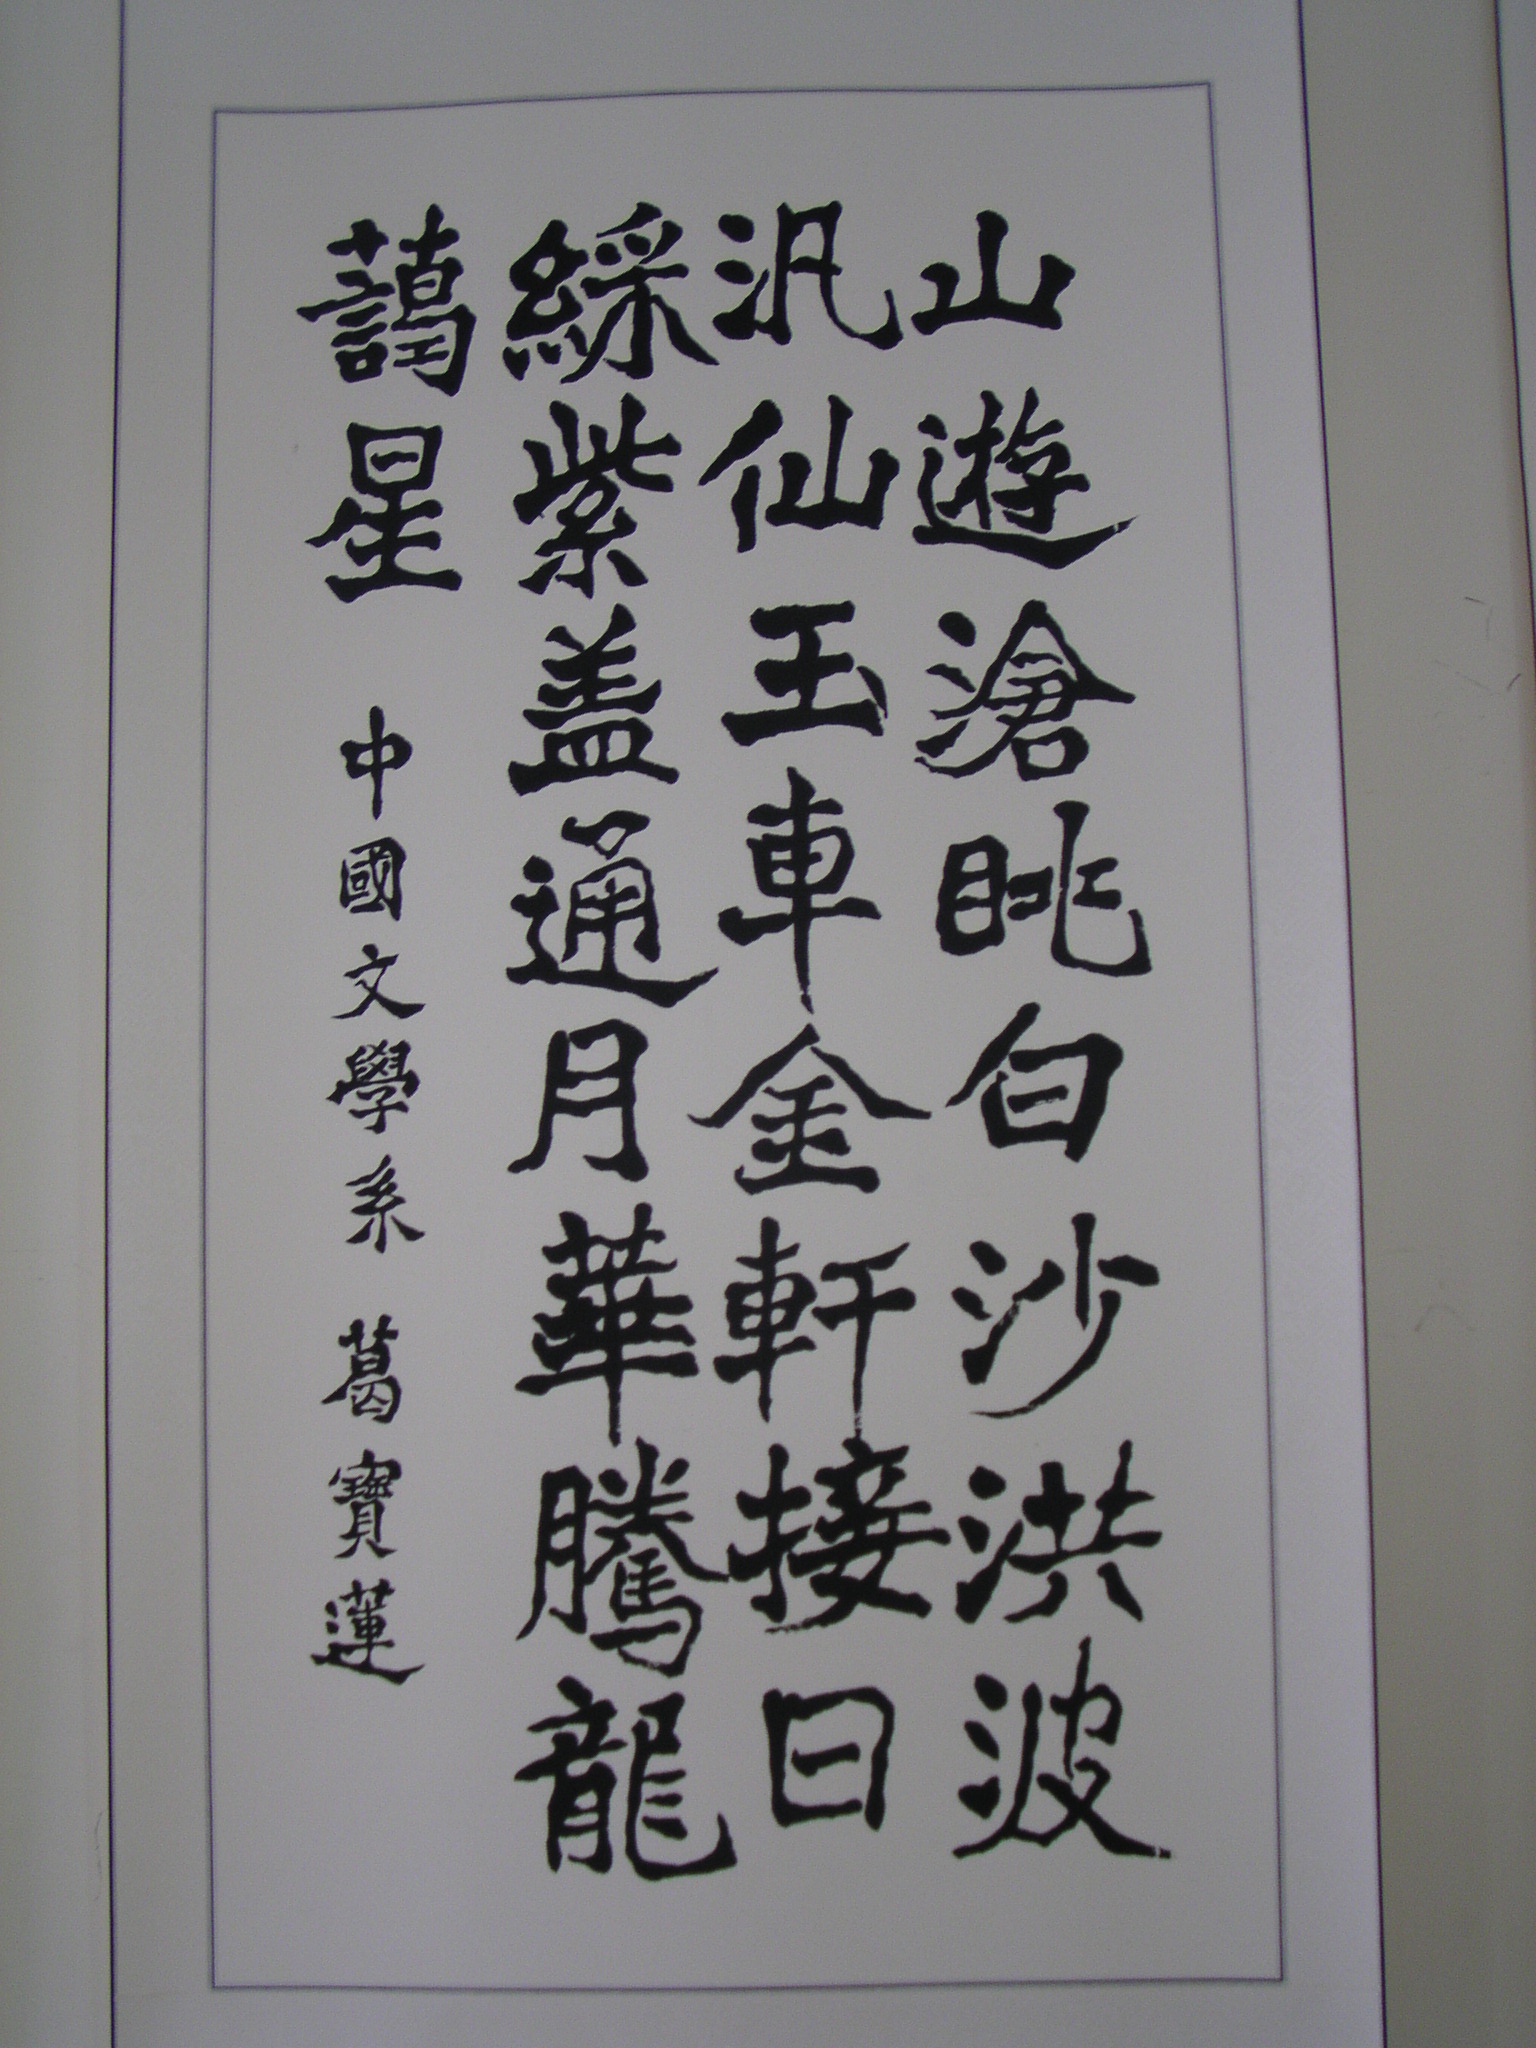 山遊滄眺白沙洪波
汎仙玉車金軒接日
綵紫盖通月華騰龍
藹星
中國文學系 葛寶蓮